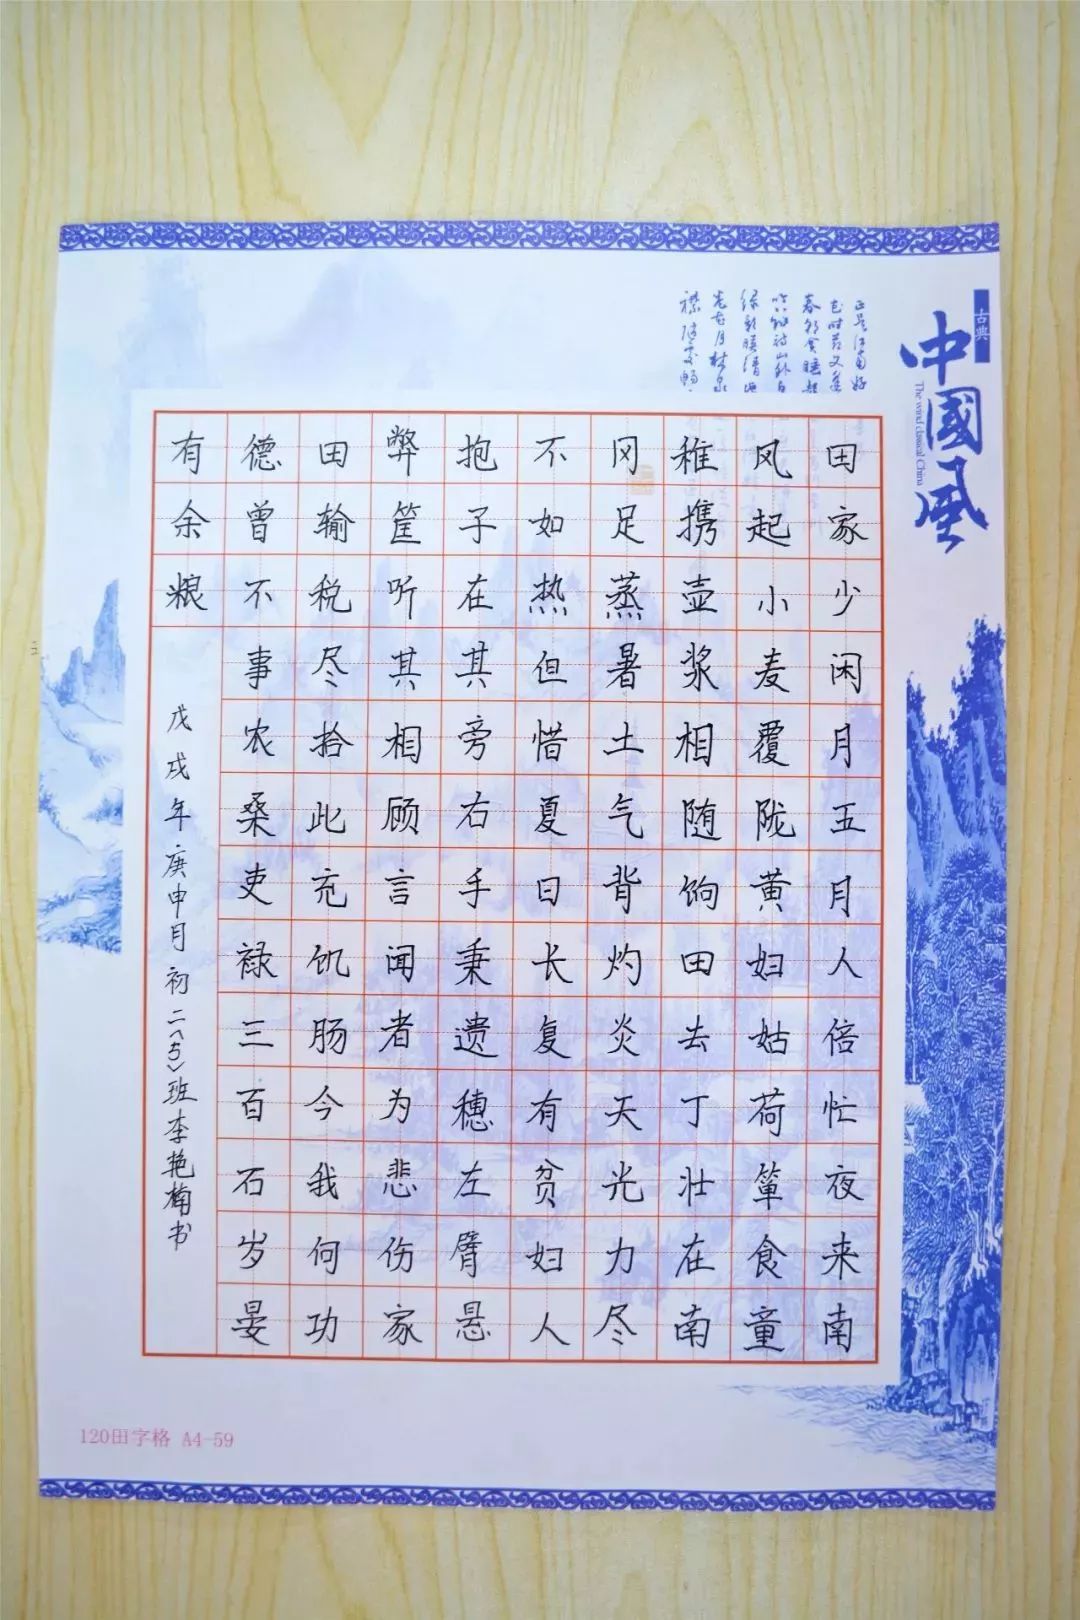 古典
中國风
The wind classical China
田家少闲月五月人倍忙夜来南
风起小麦覆陇黄妇姑荷箪食童
稚携壶浆相随饷田去丁壮在南
冈足蒸暑土气背灼炎天光力尽
不如热但惜夏日长复有贫妇人
抱子在其旁右手秉遗穗左臂悬
弊筐听其相顾言闻者为悲伤家
田输税尽拾此充饥肠今我何功
德曾不事农桑吏禄三百石岁晏
有余粮
戊戌年庚申月初二〈5〉班李艳楠书
120田字格 A4-59